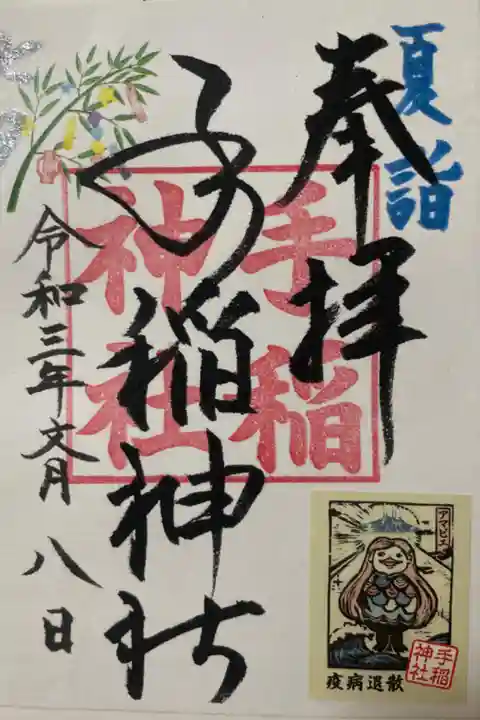 夏詣
奉拝
手稲神社
手稲
神社
令和三年文月八日
アマビエ
手稲
神社
疫病退散